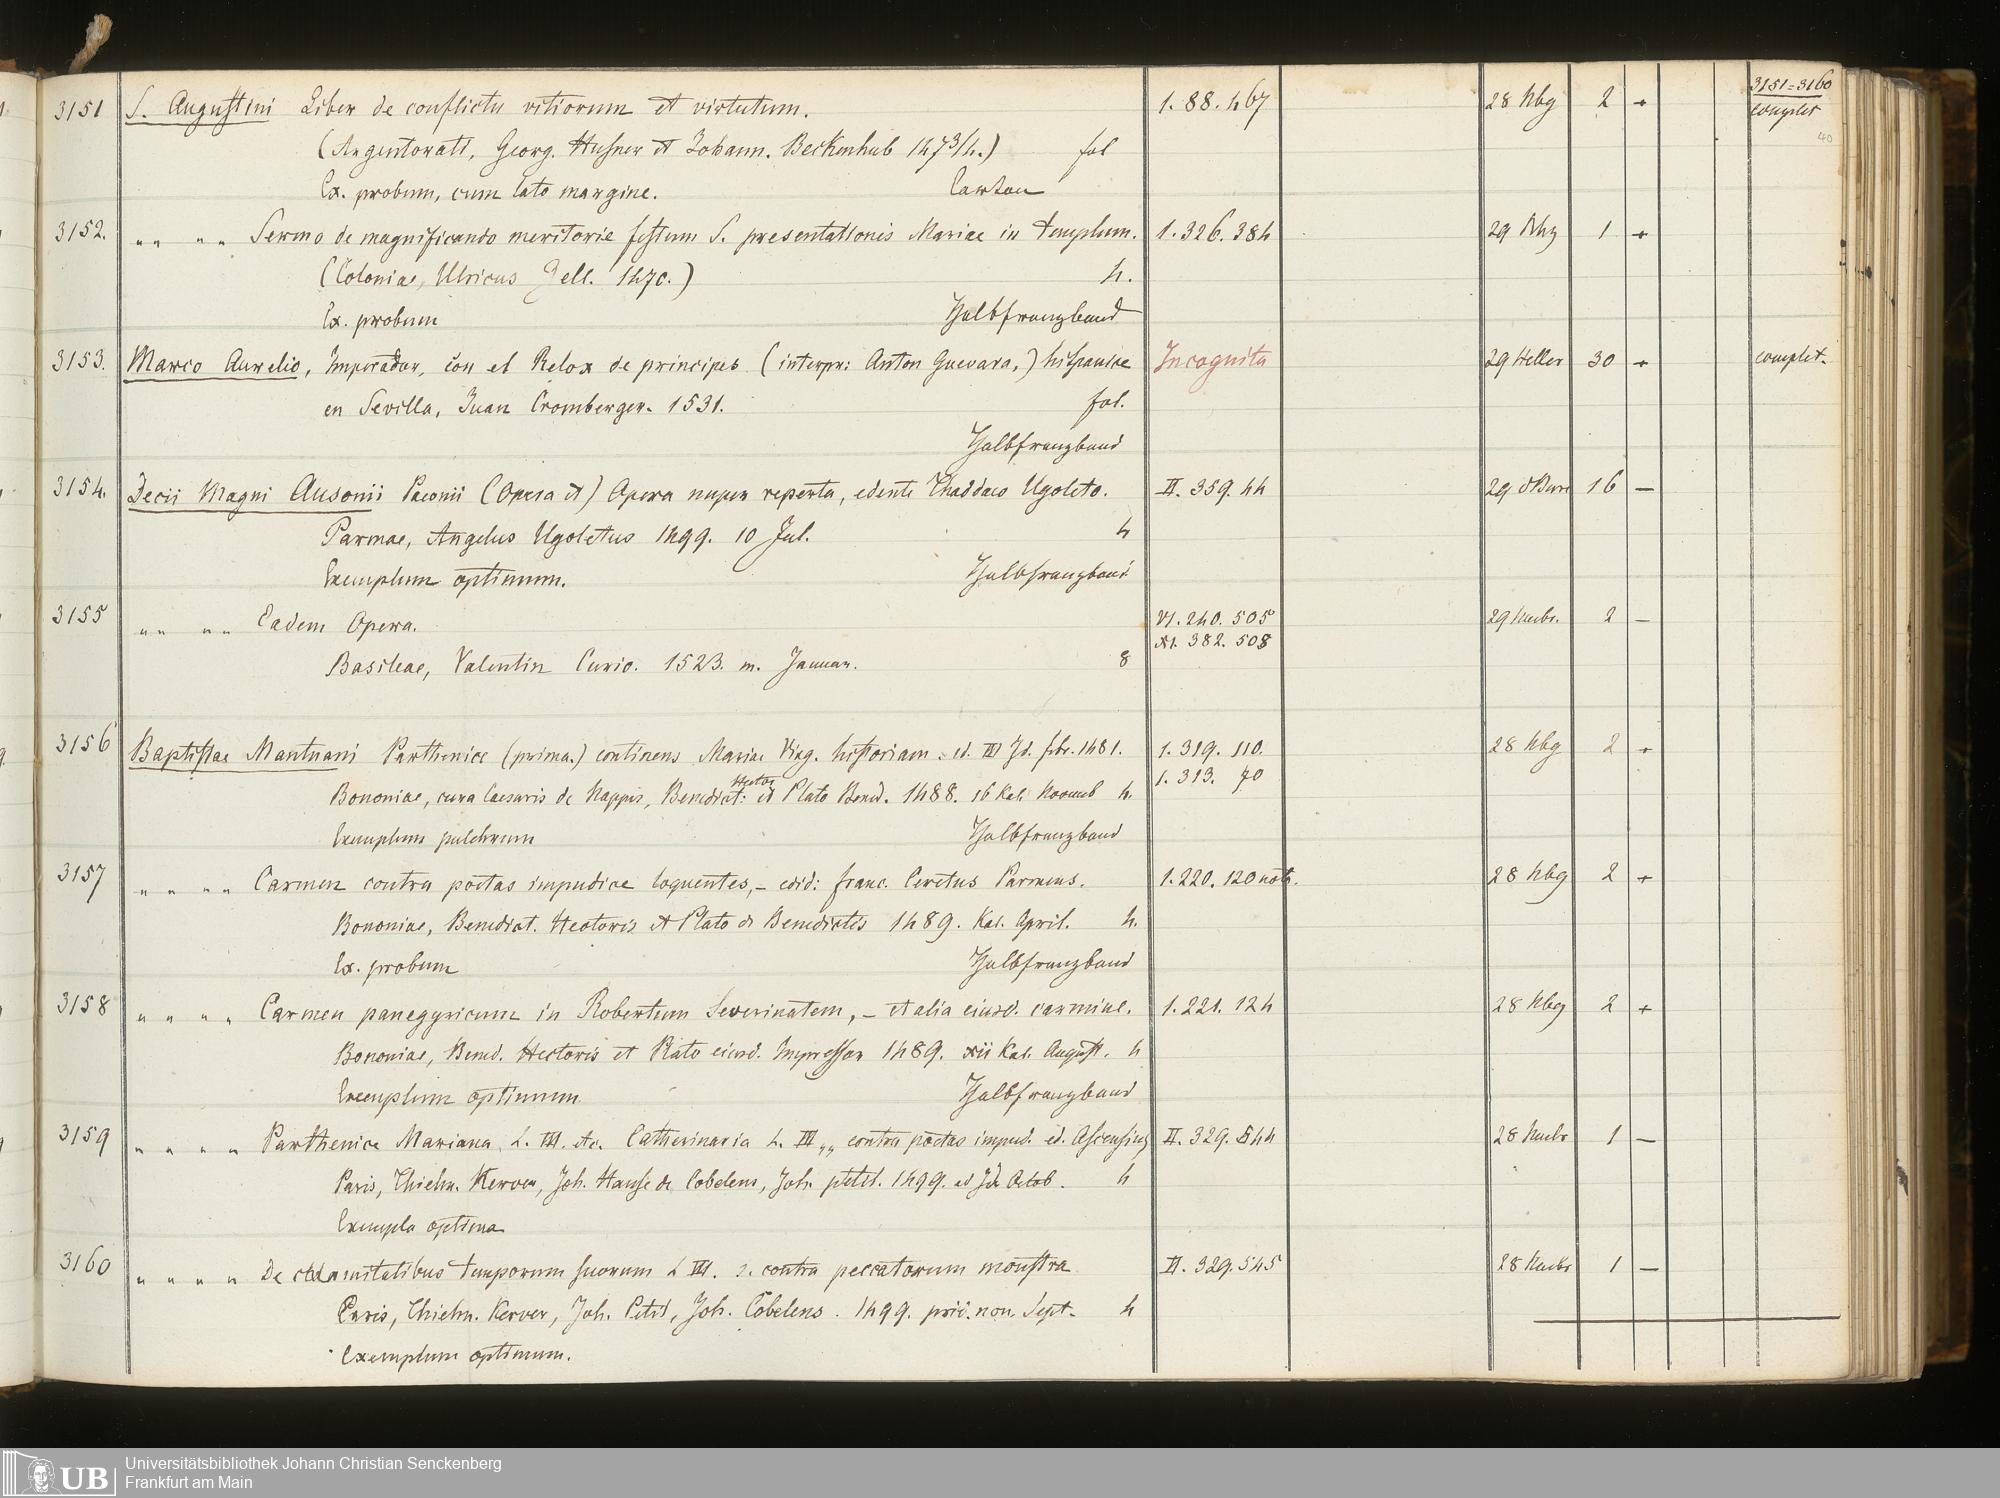 3151 S. Augustini Liber de conflictu vitiorum et virtutum. 1. 88. 467 28 Nbg 2 + 3151=3160 complet
(Argentorati, Georg. Husner et Johann. Beckenhub 1473/4.) fol 40
Ex. probum, cum lato margine. Carton
3152. „ „ „ „ Sermo de magnificando meritorie festum S. presentationis Mariae in templum. 1. 326. 384 29 1 +
(Coloniae, Ulricus Zell. 1470.) 4.
Ex. probum Halbfranzband
3153. Marco Aurelio, Imperador, con el Relox de principes (interpr: Anton Guevara,) hispanice Incognita 29 Heller 30 + complet.
en Sevilla, Juan Cromberger. 1531. fol.
Halbfranzband
3154. Decii Magni Ausonii Paeonii (Opera et) Opera nuper reperta, edente Thaddaeo Ugoleto. II. 359. 44 29 16 —
Parmae, Angelus Ugoletus 1499. 10 Jul. 4
Exemplum optimum. Halbfranzband
3155 „ „ „ „ Eadem Opera. VI. 240. 505 29 2 —
XI. 382. 508
Basileae, Valentin Curio. 1523. m. Januar. 8
3156 Baptistae Mantuani Parthenice (prima.) continens Mariae Virg. historiam. ed. III Id. febr. 1481. 1. 319. 110. 28 Nbg 2 +
1. 313. 70
Bononiae, cura Caesaris de Nappis, Benedict: Hector et Plato Bened. 1488. 16 Kal. Novemb 4.
Exemplum pulchrum Halbfranzband
3157 „ „ „ „ Carmen contra poetas impudice loquentes, – edid: franc. Ceretus Parmens. 1. 220. 120 nota. 28 Nbg 2 +
Bononiae, Benedict. Hectoris et Plato de Benedictis 1489. Kal. April. 4.
Ex. probum Halbfranzband
3158 „ „ „ „ Carmen panegyricum in Robertum Severinatem, – et alia eiusd. carmine. 1. 221. 124 28 Nbg 2 +
Bononiae, Bened. Hectoris et Plato eiusd. Impressor 1489. xii Kal. August. 4
Exemplum optimum Halbfranzband
3159 „ „ „ „ Parthenice Mariana, L. III. etc. Catherinaria L. III „ „ contra poetas impud. ed. Ascensius II. 329. 544 28 1 —
Paris, Thielm. Kerver, Joh. Hansse de Cobelens, Joh. petit. 1499. ad Id. Octob. 4
Exempla optima
3160 „ „ „ „ De calamitatibus temporum suorum L III. s. contra peccatorum monstra II. 329. 545 28 1 —
Paris, Thielm. Kerver, Joh. Petit, Joh. Cobelens. 1499. prid. non. Sept. 4
Exemplum optimum.
UB
Universitätsbibliothek Johann Christian Senckenberg
Frankfurt am Main